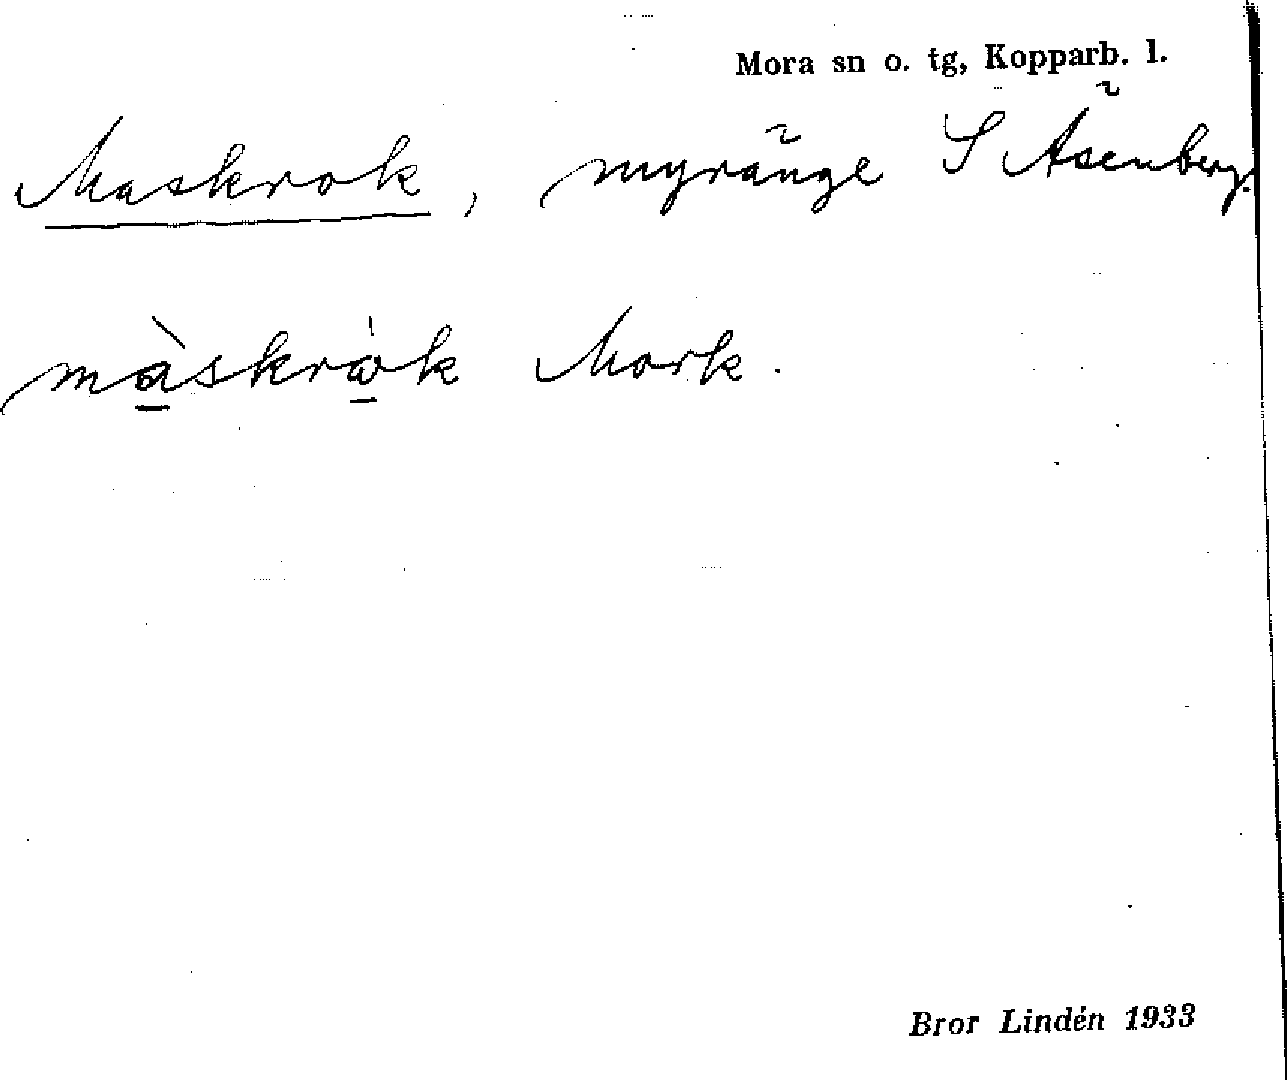 Mora sn o. tg, Kopparb. l.
Maskrok, myränge S Åsenberg.
màskròk Mork.
Bror Lindén 1933